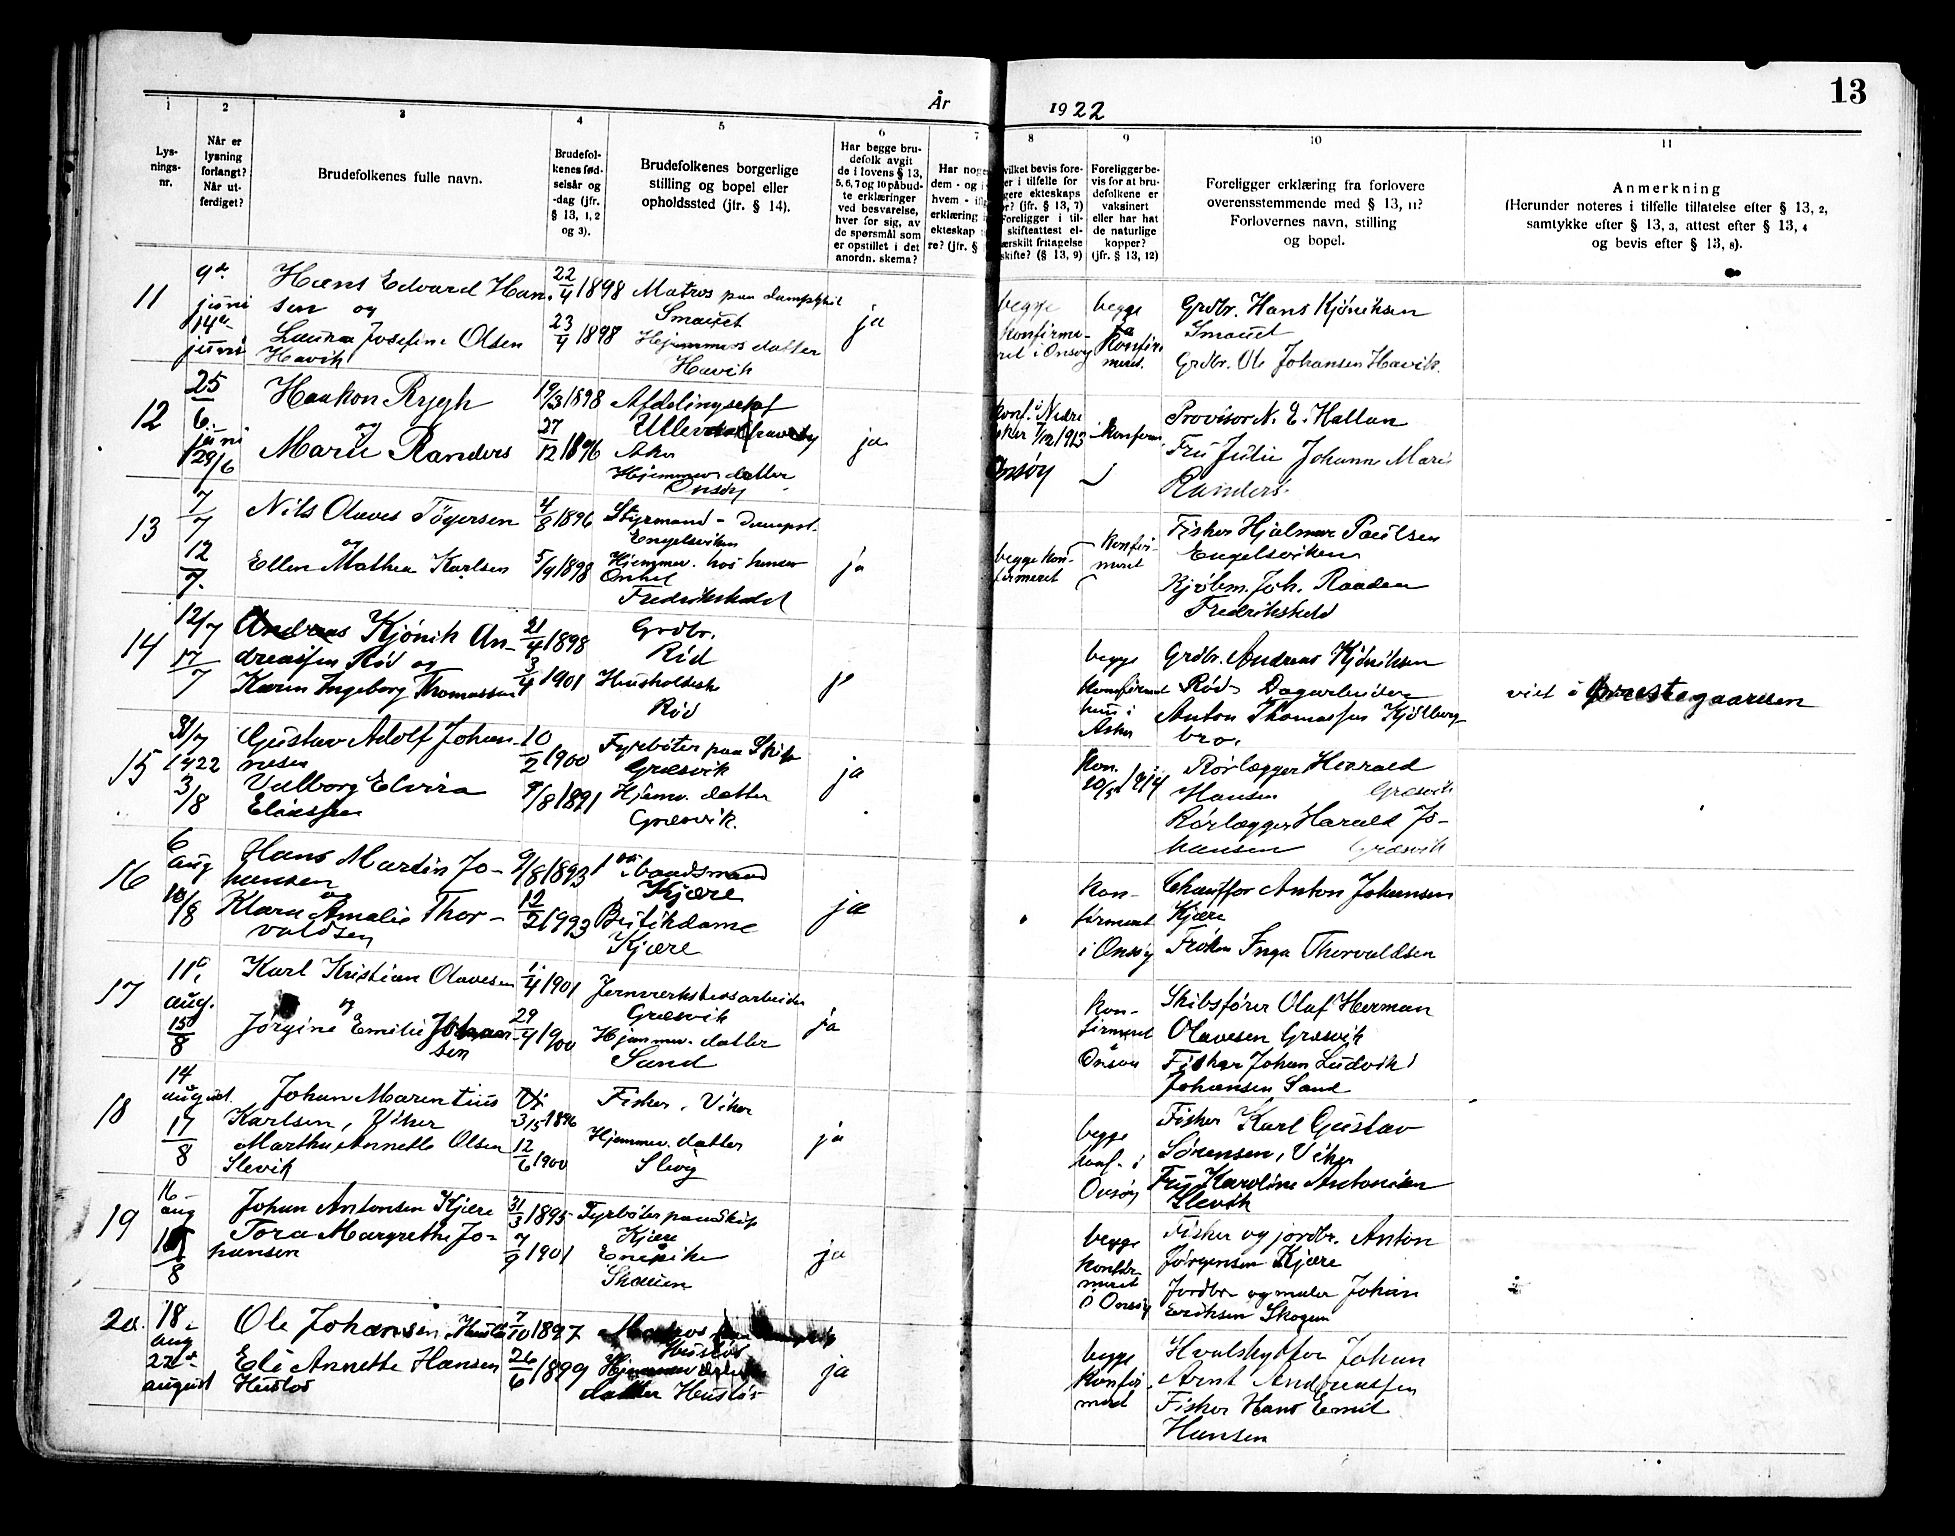 13
År 1922
1
2
3
4
5
6
7
8
9
10
11
Lys-
nings-
nr.
Når er
lysning
forlangt?
Når ut-
ferdiget?
Brudefolkenes fulle navn.
Brudefol-
kenes fød-
selsår og
-dag (jfr.
§ 13, 1, 2
og 3).
Brudefolkenes borgerlige
stilling og bopel eller
opholdssted (jfr. § 14).
Har begge bru-
defolk avgit
de i lovens § 13,
5, 6, 7 og 10 påbud-
te erklæringer
ved besvarelse,
hver for sig, av
de spørsmål som
er opstillet i det
anordn. skema?
Har noge
dem - og i
hvem - tid
erklæring
ekteskap
re? (jfr. §
vilket bevis fore-
er i tilfelle for
gere ekteskaps
or? (jfr. § 13, 7)
Foreligger i til-
skifteattest el-
erskilt fritagelse
skifte? (§ 13, 9)
Foreligger be-
vis for at bru-
defolkene er
vaksinert
eller har hat
de naturlige
kopper?
(jfr. § 13, 12)
Foreligger erklæring fra forlovere
overensstemmende med § 13, 11?
Forlovernes navn, stilling
og bopel.
Anmerkning
(Herunder noteres i tilfelle tillatelse efter § 13, 2,
samtykke efter § 13, 3, attest efter § 13, 4
og bevis efter § 13, 8).
11
9de
juni
14de
juni
Hans Edvard Han-
sen og
Laura Josefine Olsen
Havik
22/4 1898
23/4 1898
Matros paa dampskib
Smauet
Hjemmev. datter
Havik
ja
begge
konfirme-
ret i Onsøy
begge
konfir-
meret.
Grdbr. Hans Kjöniksen
Smauet
Grdbr. Ole Johansen Havik.
12
25
6.
juni
29/6
Haakon Rygh
og
Marie Randers
19/3 1898
27/12 1896
Afdelingschef
Ullevaal
Aker
Hjemmev. datter
Onsøy
ja
konf. i Nedre
Eker 7/12 1913
Onsøy
konfirm.
Provisor N. E. Hallan
Fru Julie Johanne Marie
Randers.
13
7/7
12/7.
Nils Olaves Tögersen
og
Ellen Mathea Karlsen
4/8 1896
5/9 1898
Styrmand - dampsk.
Engelsviken
Hjemmev. hos hennes
Onkel
Fredrikshald
ja
begge kon-
firmeret
konfir-
meret
Fisker Hjalmar Paulsen
Engelsviken
Kjøbm. Joh. Raaden
Fredrikshald
14
12/7
17/7
Andreas Kjönik An-
dreassen Röd og
Karen Ingeborg Thomassen
21/4 1898
3/4 1901
Grdbr.
Röd
Husholdersk
Röd
ja
begge
konfirmeret
hun i
Asker
Grdbr. Andreas Kjöniksen
Röd Dagarbeider
Anton Thomassen Kjölberg
bro.
viet i Prestegaarden
15
31/7
1922
3/8
Gustav Adolf Johan-
nesen
Valborg Elvira
Eliassen
10/2 1900
9/8 1891
Fyrböter paa Skip
Græsvik
Hjemv. datter
Græsvik.
ja
Kon.
10/5 1914
Rörlægger Harald
Hansen Græsvik
Rörlægger Harald Jo-
hansen Græsvik
16
6
aug
10/8
Hans Martin Jo-
hansen
og
Klara Amalie Thor-
valdsen
9/8 1893
12/2 1993
baadsmand
Kjære
Butikdame
Kjære
ja
kon-
firmeret
i Onsøy
Chauffør Anton Johansen
Kjære
Frøken Inga Thorvaldsen
17
11
aug.
15/8
Karl Kristian Olavesen
og
Jørgine Emilie Johan-
sen
1/4 1901
29/4 1900
Jernverkstedsarbeider
Græsvik
Hjemmev. datter
Sand
ja
kon-
firmeret
Onsøy
Skibsfører Olaf Herman
Olavesen Græsvik
Fisker Johan Ludvik
Johansen Sand
18
14
august.
17/8
Johan Marentius
Karlsen, Viker
Martha Annette Olsen
Slevik
3/5 1896
12/6 1900
Fisker, Viker
Hjemmev. datter
Slevig
ja
begge
konf. i
Onsøy
Fisker Karl Gustav
Sörensen, Viker
Fru Karoline Antonisen
Slevik
19
16
aug
18/8
Johan Antonsen Kjære
Tora Margrethe Jo-
hansen
31/3 1895
7/9 1901
Fyrböter paa Skip
Kjære
Enepike
Skauen
ja
begge
konfir-
meret
i Onsøy
Fisker og jordbr. Anton
Jørgensen Kjære
Jordbr og maler Johan
Eriksen Skogen
20.
18.
aug
22de
august
Ole Johansen Huslös
Eli Annette Hansen
Huslös
7/10 1897
26/6 1899
Matros
Huslös
Hjemmev
datter Huslös
ja
begge
konfir-
meret
Hvalskytter Johan
Arnt Andreassen
Fisker Hans Emil
Hansen